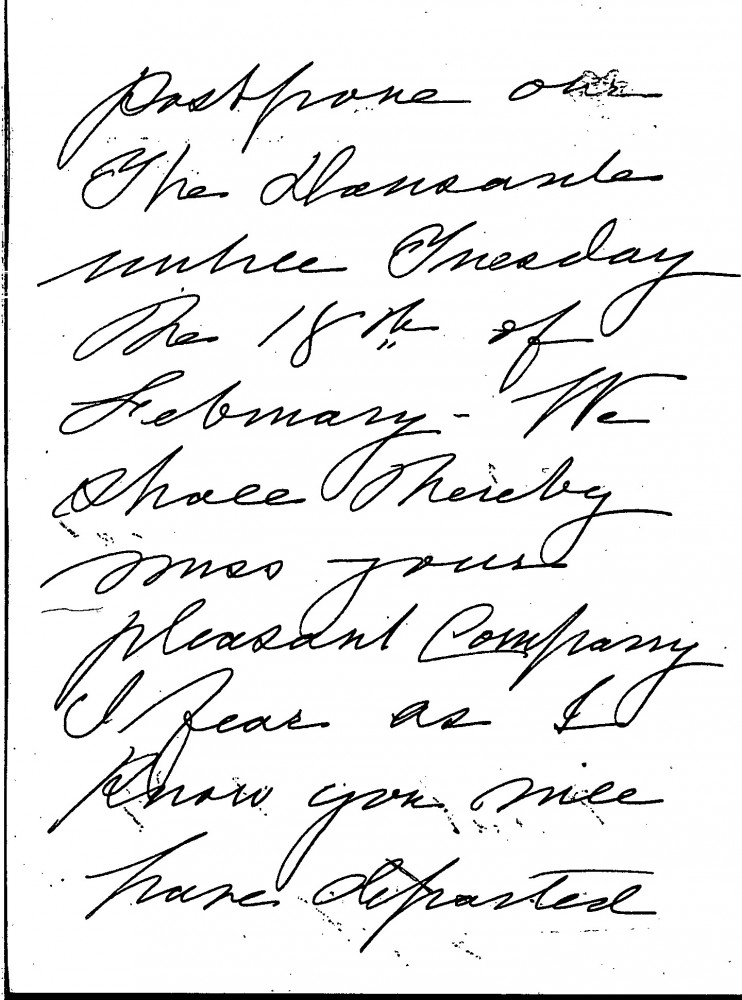 postpone our
The Dansante
until Tuesday
the 18th of
February - We
shall thereby
miss your
pleasant Company
I fear as I
Know you will
have departed